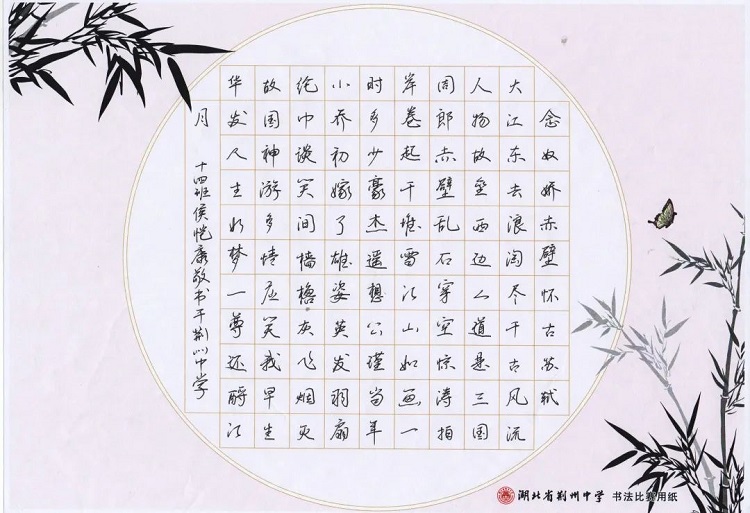 念奴娇赤壁怀古苏轼
大江东去浪淘尽千古风流
人物故垒西边人道是三国
周郎赤壁乱石穿空惊涛拍
岸卷起千堆雪江山如画一
时多少豪杰遥想公瑾当年
小乔初嫁了雄姿英发羽扇
纶巾谈笑间樯橹灰飞烟灭
故国神游多情应笑我早生
华发人生如梦一尊还酹江
月 十四班侯恺康敬书于荆州中学
湖北省荆州中学 书法比赛用纸